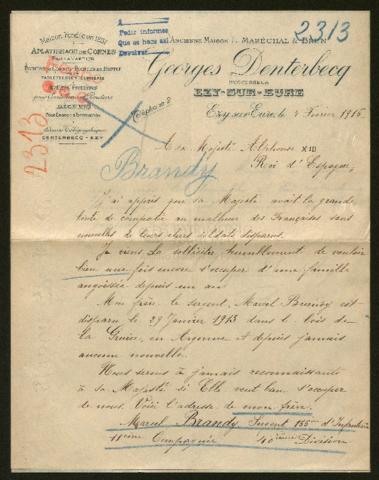 Maison Fondée en 1834
APLATISSAGE DE CORNES
Pedir informes
Que se haga así
Devolver
ANCIENNE MAISON F. MARÉCHAL & BAUX
2313
Georges Denterbecq
SUCCESSEUR
EZY-SUR-EURE
Téléphone 2
Ezy-sur-Eure, le 1 Février 1916
2313
DENTERBECQ - EZY
A sa Majesté Alphonse XIII
Roi d'Espagne,
Brandy
J'ai appris que sa Majesté avait la grande
bonté de compatir au malheur des Françaises sans
nouvelles de leurs chers soldats disparus.
Je viens La solliciter humblement de vouloir
bien une fois encore s'occuper d'une famille
angoissée depuis un an.
Mon frère le sergent Marcel Brandy est
disparu le 29 Janvier 1915 dans le bois de
la Gruerie, en Argonne et depuis jamais
aucune nouvelle.
Nous serons à jamais reconnaissants
à sa Majesté si Elle veut bien s'occuper
de nous. Voici l'adresse de mon frère.
Marcel Brandy Sergent 155ème d'Infanterie
11ème Compagnie 40ième Division